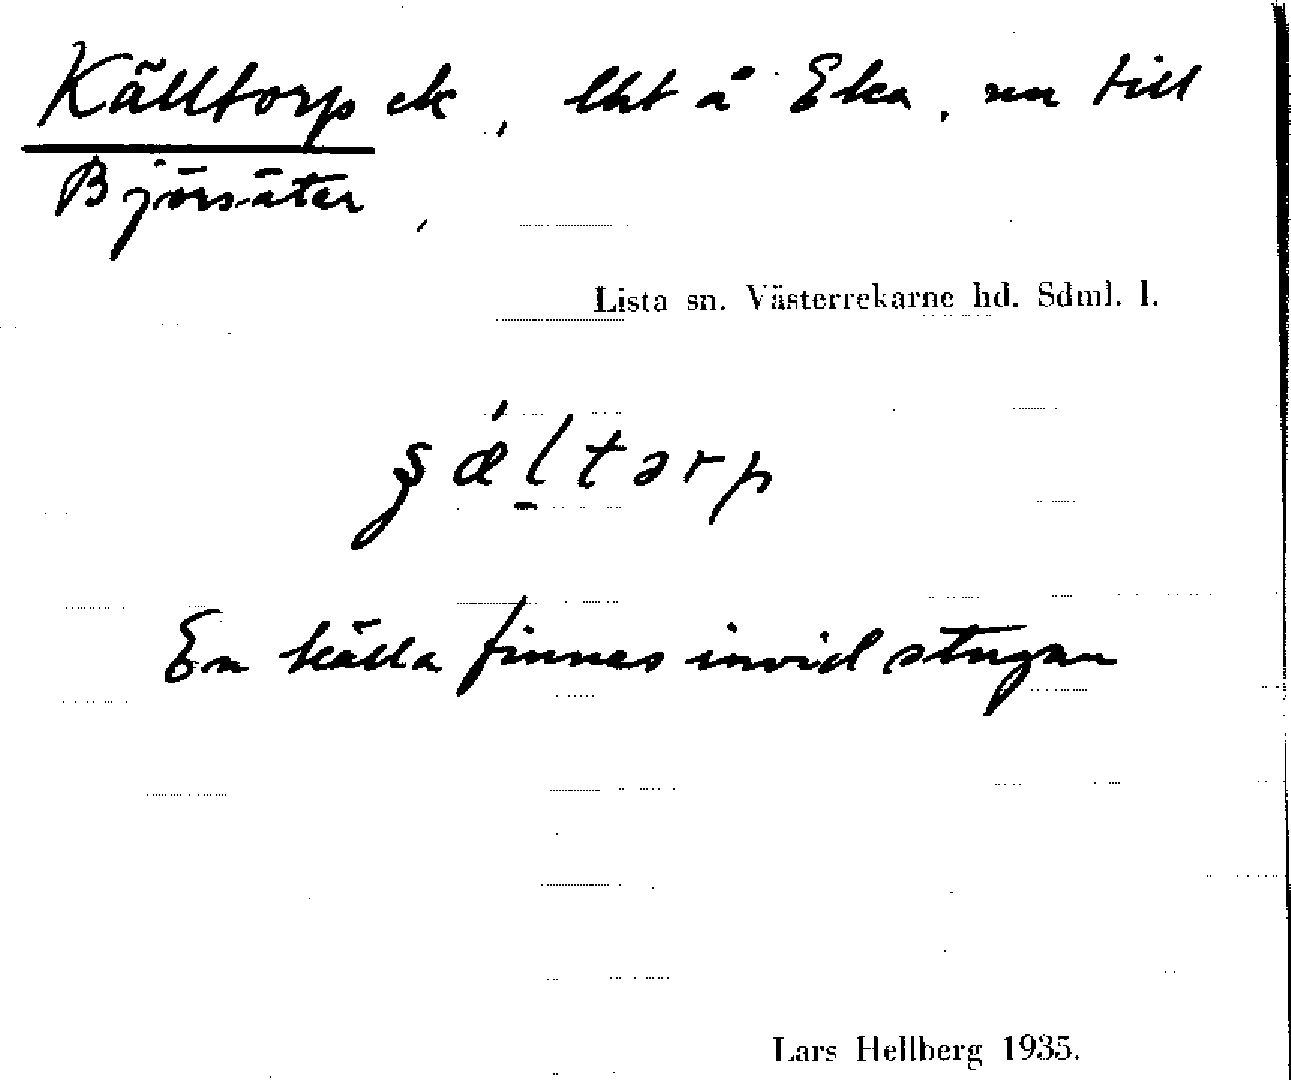 Källtorp ek, lht å Eka, nu till
Björsäter,
Lista sn. Västerrekarne hd. Sdml. l.
En källa finnes invid stugan
Lars Hellberg 1935.